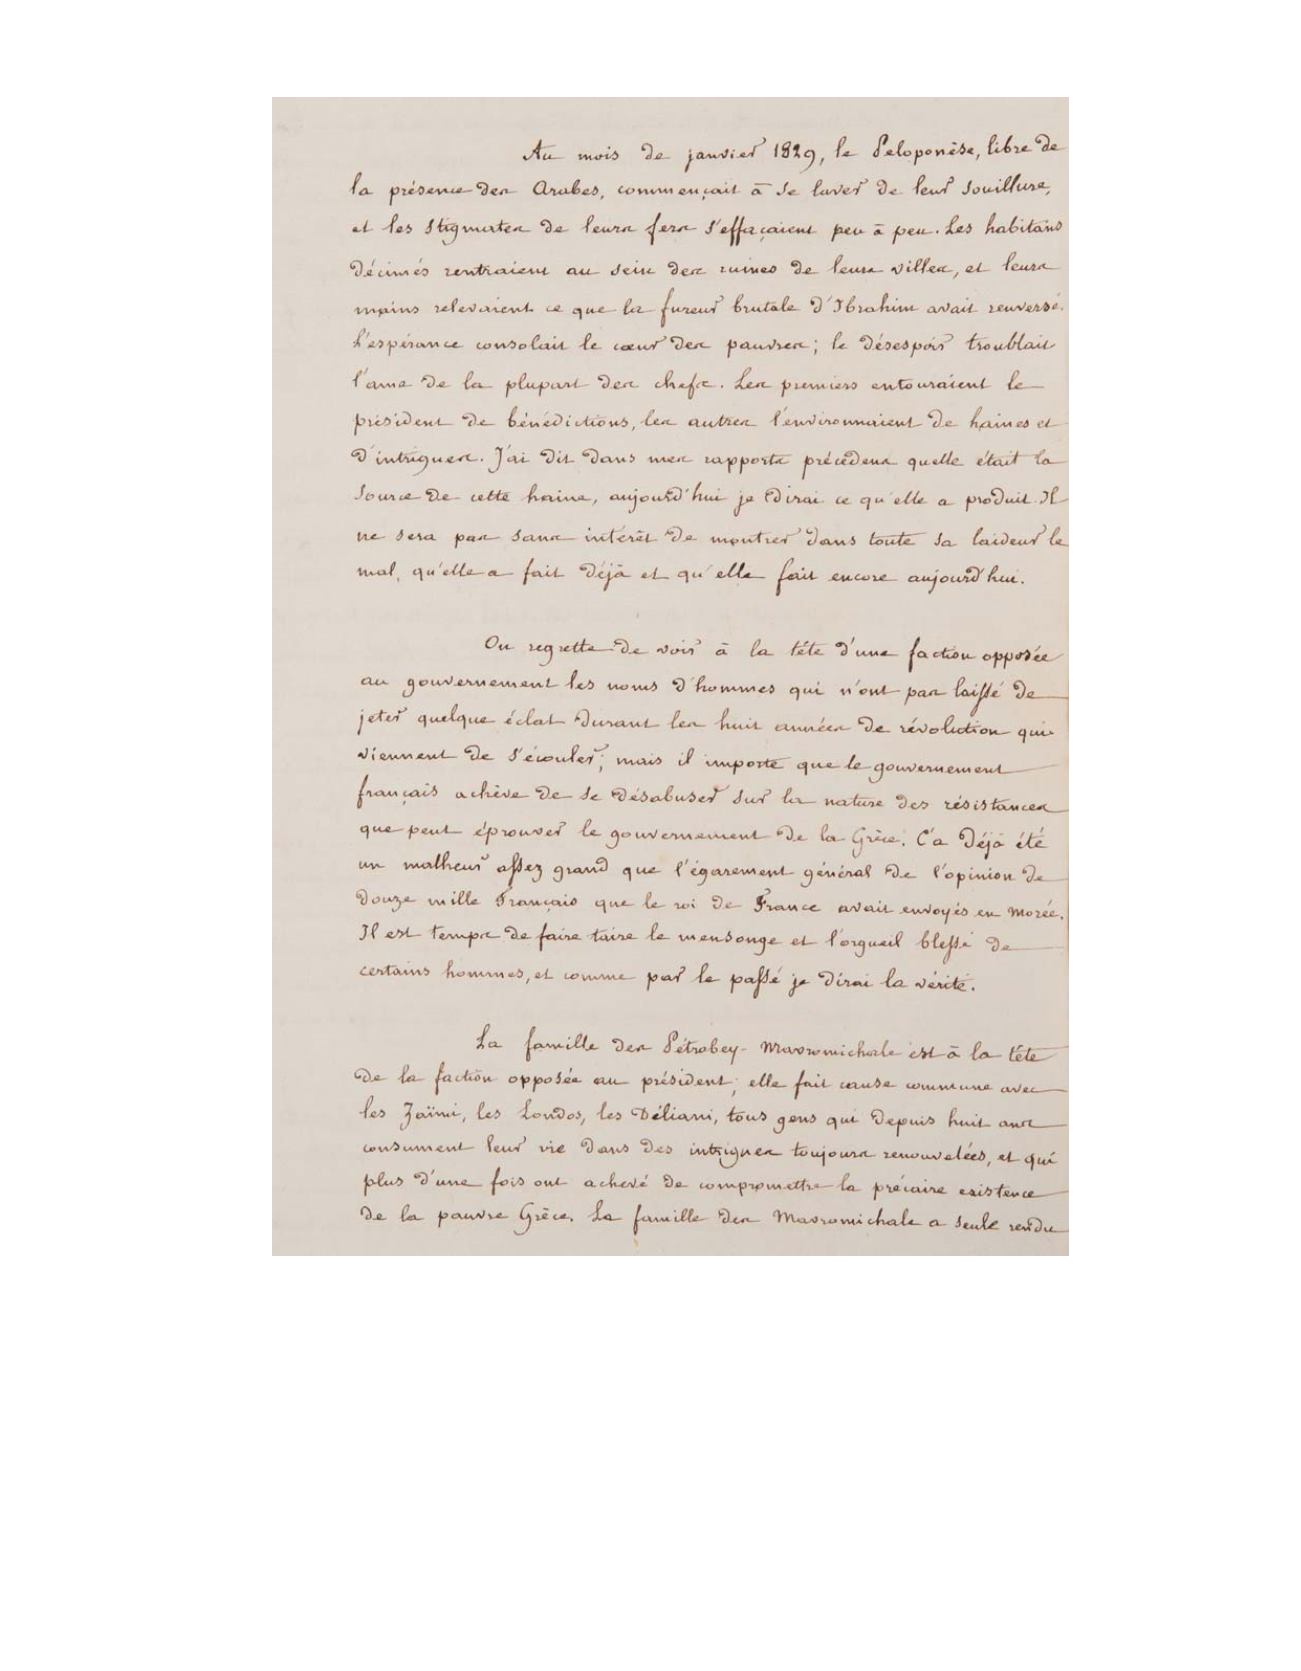 Au mois de janvier 1829, le Peloponèse, libre de
la présence des Arabes, commençait à se laver de leur souillure,
et les stigmates de leurs fers s'effaçaient peu à peu. Les habitans
décimés rentraient au sein des ruines de leurs villes, et leurs
mains relevaient ce que la fureur brutale d'Ibrahim avait renversé.
L'espérance consolait le cœur des pauvres ; le désespoir troublait
l'ame de la plupart des chefs. Les premiers entouraient le
président de bénédictions, les autres l'environnaient de haines et
d'intrigues. J'ai dit dans mes rapports précédens quelle était la
source de cette haine, aujourd'hui je dirai ce qu'elle a produit. Il
ne sera pas sans intérêt de montrer dans toute sa laideur le
mal, qu'elle a fait déjà et qu'elle fait encore aujourd'hui.
On regrette de voir à la tête d'une faction opposée
au gouvernement les noms d'hommes qui n'ont pas laissé de
jeter quelque éclat durant les huit années de révolution qui
viennent de s'écouler ; mais il importe que le gouvernement
français achève de se désabuser sur la nature des résistances
que peut éprouver le gouvernement de la Grèce. C'a déjà été
un malheur assez grand que l'égarement général de l'opinion de
douze mille Français que le roi de France avait envoyés en Morée.
Il est temps de faire taire le mensonge et l'orgueil blessé de
certains hommes, et comme par le passé je dirai la vérité.
La famille des Pétrobey-Mavromichale est à la tête
de la faction opposée au président ; elle fait cause commune avec
les Zaïmi, les Londos, les Déliani, tous gens qui depuis huit ans
consument leur vie dans des intrigues toujours renouvelées, et qui
plus d'une fois ont achevé de compromettre la précaire existence
de la pauvre Grèce. La famille des Mavromichale a seule rendu